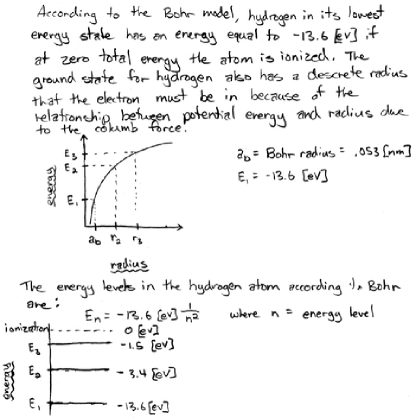 According to the Bohr model, hydrogen in its lowest
energy state has an energy equal to -13.6 [eV] if
at zero total energy the atom is ionized. The
ground state for hydrogen also has a descrete radius
that the electron must be in because of the
relationship between potential energy and radius due
to the columb force.
E₃
E₂
E₁
energy
a_b r₂ r₃
radius
a_b = Bohr radius = .053 [nm]
E₁ = -13.6 [eV]
The energy levels in the hydrogen atom according Bohr
are:
E_n = -13.6 [eV] 1/n² where n = energy level
ionization 0 [eV]
E₃ -1.5 [eV]
E₂ -3.4 [eV]
E₁ -13.6 [eV]
energy